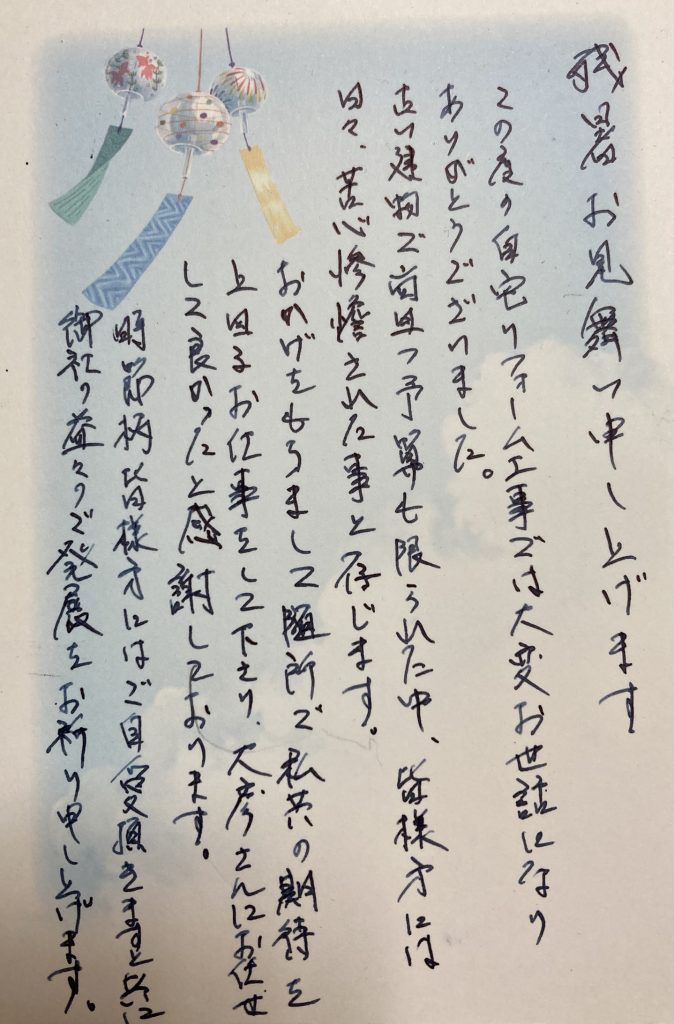 残暑お見舞い申し上げます
この度の自宅リフォーム工事では大変お世話になり
ありがとうございました。
古い建物で尚且つ予算も限られた中、皆様方には
日々、苦心惨憺された事と存じます。
おかげをもちまして随所で私共の期待を
上回るお仕事をして下さり、大彦さんにお任せ
して良かったと感謝しております。
時節柄皆様方にはご自愛頂きますと共に
御社の益々のご発展をお祈り申し上げます。